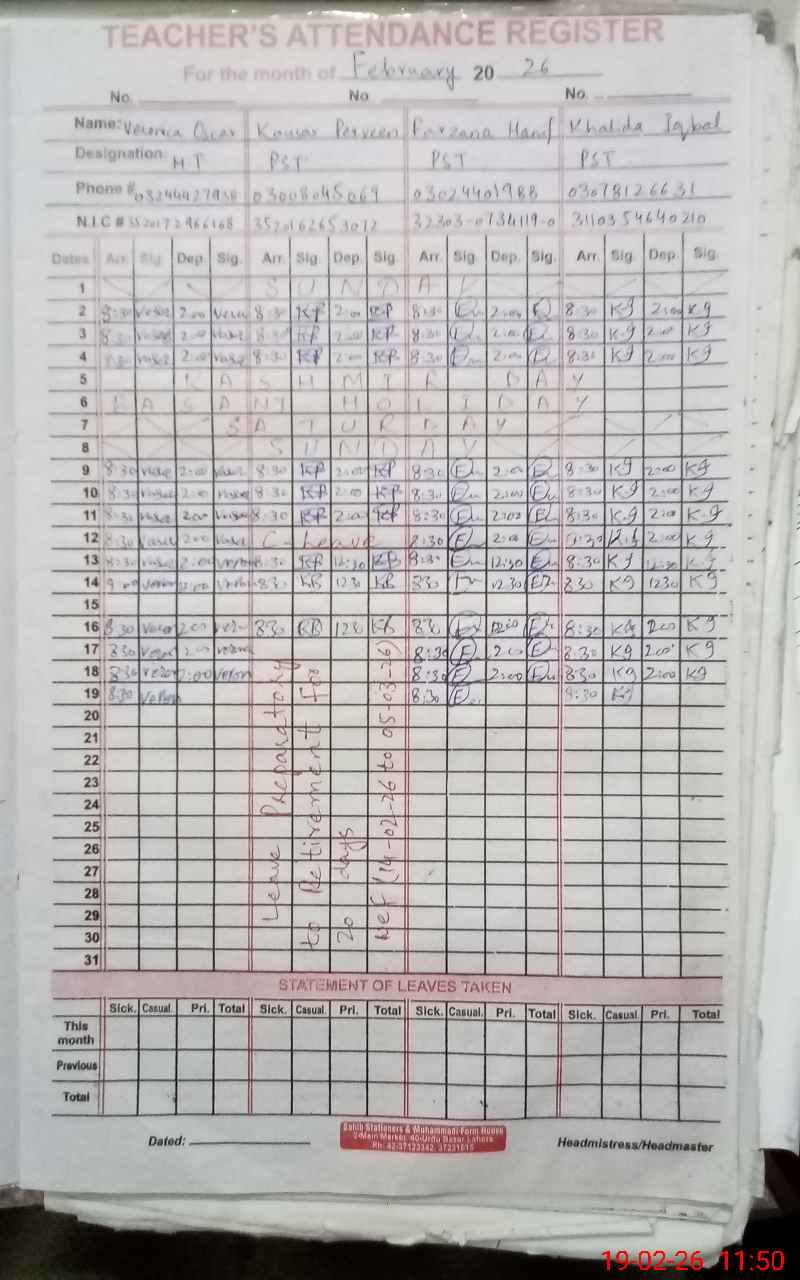 TEACHER'S ATTENDANCE REGISTER
For the month of February 20 26
No. No No.
Name: Veronica Oscar Kousar Perveen Farzana Hanif Khalida Iqbal
Designation: HT PST PST PST
Phone # 03244427938 03008045069 03024401988 03078126631
N.I.C # 3520172966168 3520162653072 32303-0734119-0 3110354640210
Dates Arr. Sig. Dep. Sig. Arr. Sig. Dep. Sig. Arr. Sig. Dep. Sig. Arr. Sig. Dep. Sig.
1 SUNDAY
2 8:30 2:00 8:30 KP 2:00 KP 8:30 2:00 8:30 Kg 2:00 Kg
3 8:30 2:00 8:30 KP 2:00 KP 8:30 2:00 8:30 Kg 2:00 Kg
4 2:00 8:30 KP 2:00 KP 8:30 2:00 8:30 Kg 2:00 Kg
5 KASHMIR DAY
6 BASANT HOLIDAY
7 SATURDAY
8 SUNDAY
9 8:30 2:00 8:30 KP 2:00 KP 8:30 2:00 8:30 Kg 2:00 Kg
10 8:30 2:00 8:30 KP 2:00 KP 8:30 2:00 8:30 Kg 2:00 Kg
11 8:30 2:00 8:30 KP 2:00 KP 8:30 2:00 8:30 Kg 2:00 K-g
12 8:30 2:00 C-Leave 8:30 2:00 Kg 2:00 Kg
13 8:30 2:00 8:30 KP 12:30 KP 8:30 12:30 8:30 Kg
14 9:00 8:30 KB 1230 KB 830 12.30 830 Kg 1230 Kg
15
16 8:30 2:00 830 KB 1230 KB 830 8:30 Kg 2:00 Kg
17 830 2:00 8:30 2:00 8:30 Kg 2:00 Kg
18 830 2:00 8:30 2:00 830 Kg 2:00 Kg
19 8:30 8:30 8:30 Kg
20
21
22
23
24
25
26
27
28
29
30
31
Leave Preparatory
to Retirement For
20 days
wef (14-02-26 to 05-03-26)
STATEMENT OF LEAVES TAKEN
Sick. Casual. Pri. Total Sick. Casual. Pri. Total Sick. Casual. Pri. Total Sick. Casual. Pri. Total
This month
Previous
Total
Dated:
Sahib Stationers & Muhammadi Form House
2-Main Market, 40-Urdu Bazar Lahore
Ph: 42-37123342, 37231615
Headmistress/Headmaster
19-02-26 11:50